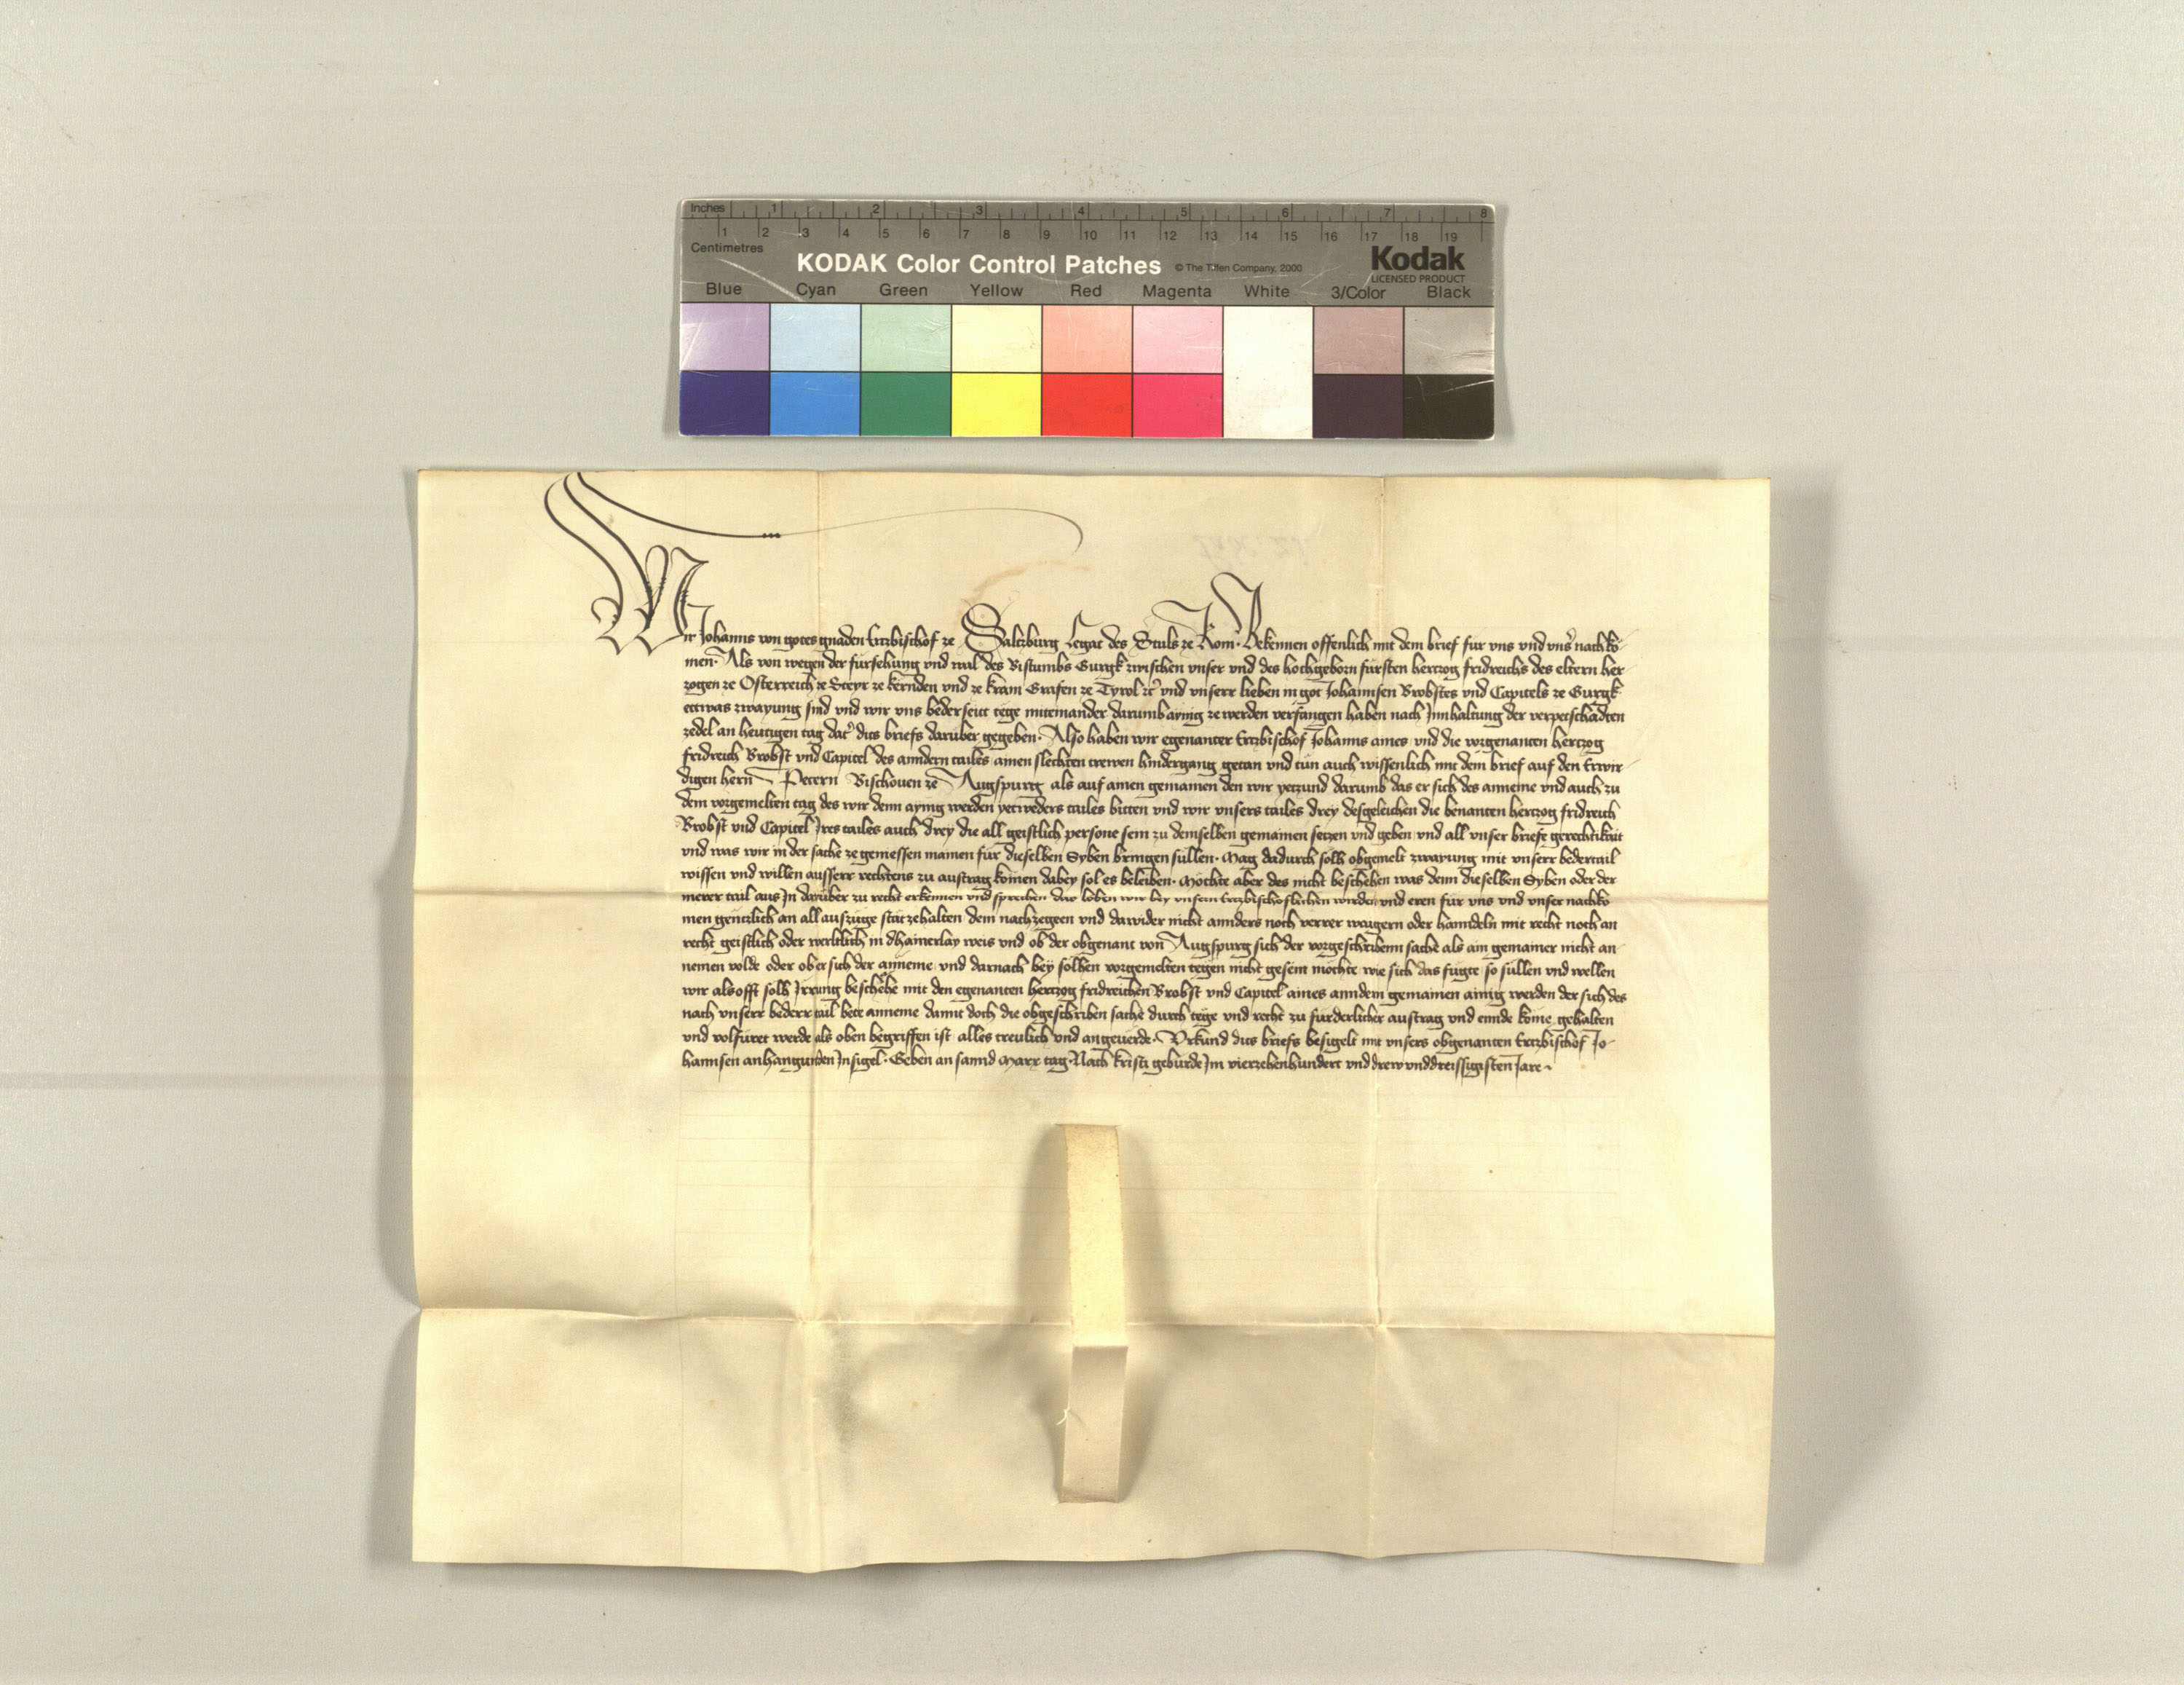 Inches 1 2 3 4 5 6 7 8
1 2 3 4 5 6 7 8 9 10 11 12 13 14 15 16 17 18 19
Centimetres
KODAK Color Control Patches © The Tiffen Company, 2000 Kodak
LICENSED PRODUCT
Blue Cyan Green Yellow Red Magenta White 3/Color Black
Wir Johanns von gotes gnaden Ertzbischof ze Saltzburg Legat des Stuls ze Rom. Bekennen offenlich mit dem brief für vns vnd vnsr nachko-
men. Als von wegen der fürsehung vnd wal des Bistumbs Gurgk zwischen vnser vnd des hochgeborn fürsten hertzog fridreichs des eltern her-
zogen ze Österreich ze Steyr ze kernden vnd ze krain Grafen ze Tyrol etc vnd vnserr lieben in got Johannsen Brobstes vnd Capitels ze Gurgk
ettwas zwayung sind vnd wir vns bederseitt tege miteinander darumb aynig ze werden verfangen haben nach Innhaltung der verpetschadten
zedel an heutigen tag dat dits briefs darüber gegeben. Also haben wir egenanter Ertzbischof Johanns aines vnd die vorgenanten hertzog
fridreich Brobst vnd Capitel des anndern tailes ainen slechten trewen hindergang getan vnd tün auch wissenlich mit dem brief auf den Erwir-
digen hern Petern Bischouen ze Augspurg als auf ainen gemainen den wir yetzund darumb das er sich des anneme vnd auch zu
dem vorgemelten tag des wir denn aynig werden yetweders tailes bitten vnd wir vnsers tailes drey desgeleichen die benanten hertzog fridreich
Brobst vnd Capitel Ires tailes auch drey die all geistlich persone sein zu demselben gemainen setzen vnd geben vnd all vnser briefe gerechtikait
vnd was wir in der sache ze geniessen mainen für dieselben Syben bringen süllen. Mag dadurch solh obgemelt zwayung mit vnserr bedertail
wissen vnd willen ausserr rechtens zu austrag komen dabey sol es beleiben. Möchte aber des nicht beschehen was denn dieselben Syben oder der
merer tail aus In darüber zu recht erkennen vnd sprechen daz loben wir bey vnsern Ertzbischoflichen wirden vnd eren für vns vnd vnser nachko-
men gentzlich an all auszüge stät zehalten dem nachzegeen vnd dawider nicht annders noch verrer waigern oder hanndeln mit recht noch an
recht geistlich oder werltlich in dhainerlay weis vnd ob der obgenant von Augspurg sich der vorgeschribenn sache als ain gemainer nicht an-
nemen wolde oder ob er sich der anneme vnd darnach bey solhen vorgemelten tegen nicht gesein möchte wie sich das fügte so süllen vnd wellen
wir als offt solh Irrung beschehe mit den egenanten hertzog fridreichen Brobst vnd Capitel aines anndern gemainen ainig werden der sich des
nach vnserr bederr tail bete anneme damit doch die obgeschriben sache durch tege vnd recht zu fürderlicher austrag vnd ennde kome gehalten
vnd volfüret werde als oben begriffen ist alles treulich vnd angeuerde. Vrkund dits briefs besigelt mit vnsers obgenanten Ertzbischof Jo-
hannsen anhangunden Insigel. Geben an sannd Marx tag. Nach kristi geburde Im vierzehenhundert vnd drewunddreissigisten Jare